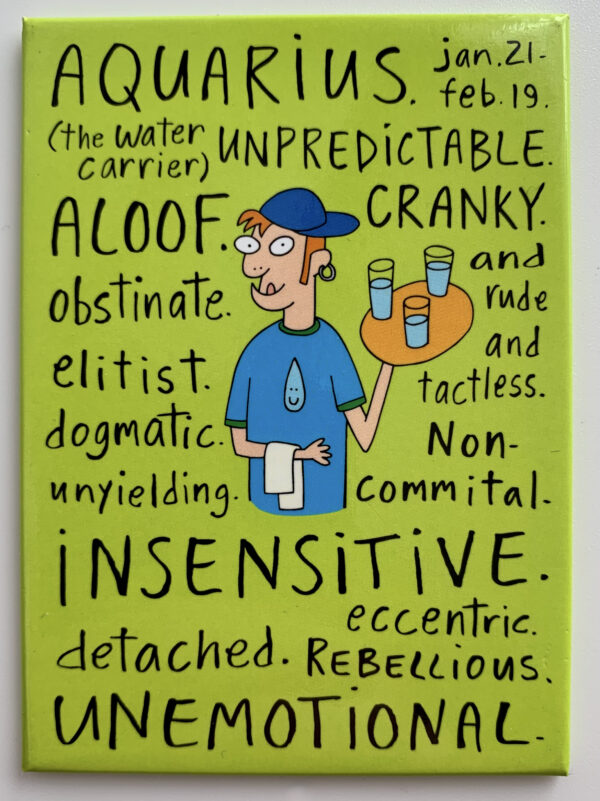 AQUARIUS. jan.21-
feb.19.
(the water
carrier) UNPREDICTABLE.
ALOOF. CRANKY.
and
obstinate. rude
and
elitist. tactless.
dogmatic. Non-
unyielding. commital.
INSENSITIVE.
eccentric.
detached. REBELLIOUS.
UNEMOTIONAL.